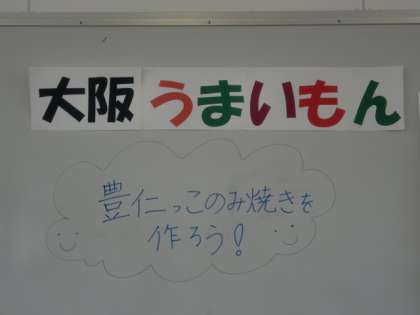 大阪うまいもん
豊仁っこのみ焼きを
作ろう!